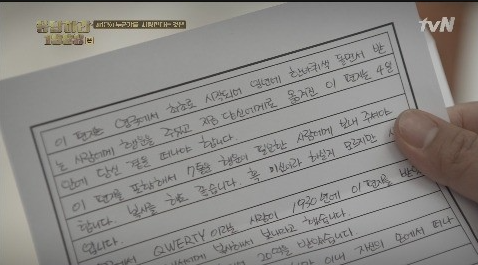 응답하라 1988
tvN
이 편지는 영국에서 최초로 시작되어 일년에 한바퀴씩 돌면서 받
는 사람에게 행운을 주었고 지금 당신에게로 옮겨진 이 편지는 4일
안에 당신 곁을 떠나야 합니다.
이 편지를 포함해서 7통을 행운이 필요한 사람에게 보내 주셔야
합니다. 복사를 해도 좋습니다. 혹 미신이라 하실지 모르지만 사
입니다.
QWERTY 이라는 사람이 1930년에 이 편지를 받
복사해서 보내라고 했습니다.
20억을 받았습니다.
이내 자신의 손에서 떠나